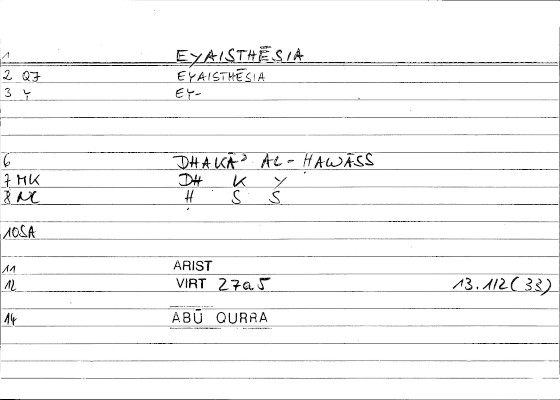 1 EYAISTHĒSIA
2 Q7 EYAISTHĒSIA
3 Y EY-
6 DHAKĀʾ AL-ḤAWĀSS
7 MK DH K Y
8 NC Ḥ S S
10 SA
11 ARIST
12 VIRT 27a5 13.112(33)
14 ABŪ QURRA